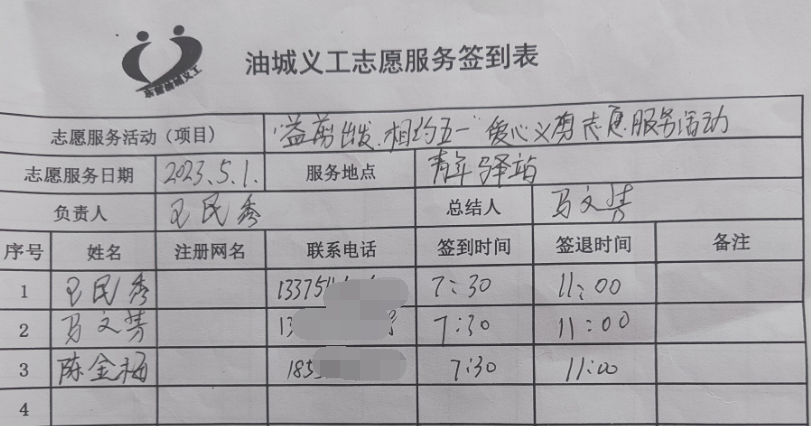 东营油城义工
油城义工志愿服务签到表
志愿服务活动（项目） “益剪出发，相约五一”爱心义剪志愿服务活动
志愿服务日期 2023.5.1. 服务地点 青年驿站
负责人 王民秀 总结人 马文芳
序号 姓名 注册网名 联系电话 签到时间 签退时间 备注
1 王民秀 13375 7:30 11:00
2 马文芳 13 7:30 11:00
3 陈金梅 185 7:30 11:00
4